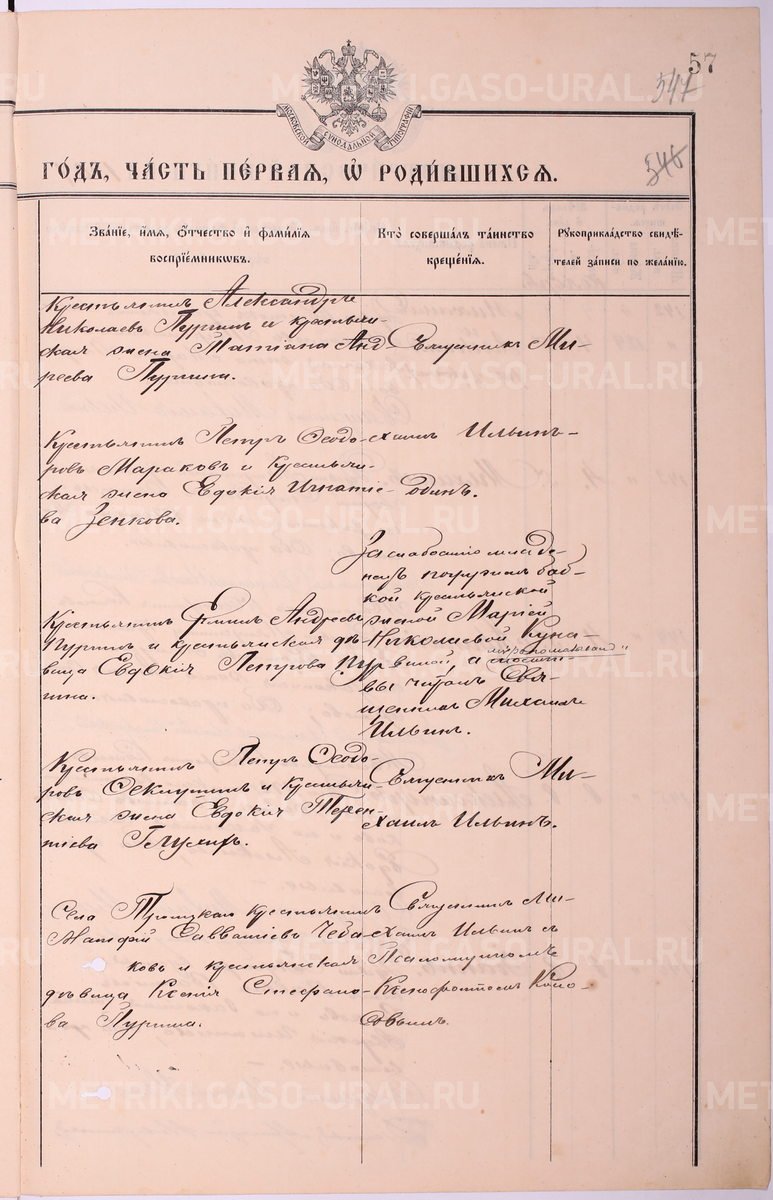 57
547
546
Московской Сѵнодальной Типографіи
Го́дъ, ча́сть пе́рвая, ѡ҆ роди́вшихсѧ.
Зва́нїе, и҆́мѧ, ѻ҆́тчество и҆ фами́лїѧ
воспрїе́мникѡвъ.
Кто̀ соверша́лъ та́инство
креще́нїѧ.
Рꙋкоприкла́дство свидѣ́-
телей за́писи по жела́нїю.
Крестьянинъ Александръ
Николаевъ Пургинъ и крестьян-
ская жена Татіана Анд-
реева Пургина.
Священникъ Ми-
Крестьянинъ Петръ Ѳеодо-
ровъ Мараковъ и крестьян-
ская жена Евдокія Игнатіе-
ва Зенкова.
хаилъ Ильинъ
Крестьянинъ Андреевъ
Пургинъ и крестьянская дѣ-
вица Евдокія Петрова Пур-
гина.
За слабостію младе-
нецъ погруженъ баб-
кой крестьянской
женой Маріей
Николаевой Куна-
виной, а
муропомазанъ
вы читалъ Свя-
щенникъ Михаилъ
Ильинъ.
Крестьянинъ Петръ Ѳеодо-
ровъ и крестьян-
ская жена Евдокія Терен-
тіева Глухихъ.
Священникъ Ми-
хаилъ Ильинъ.
Села Троицкаго крестьянинъ
Матфій Савватіевъ Чеба-
ковъ и крестьянская
дѣвица Ксенія Стефано-
ва Пургина.
Священникъ Ми-
хаилъ Ильинъ съ
Псаломщикомъ
Ксенофонтомъ Коно-
METRIKI.GASO-URAL.RU